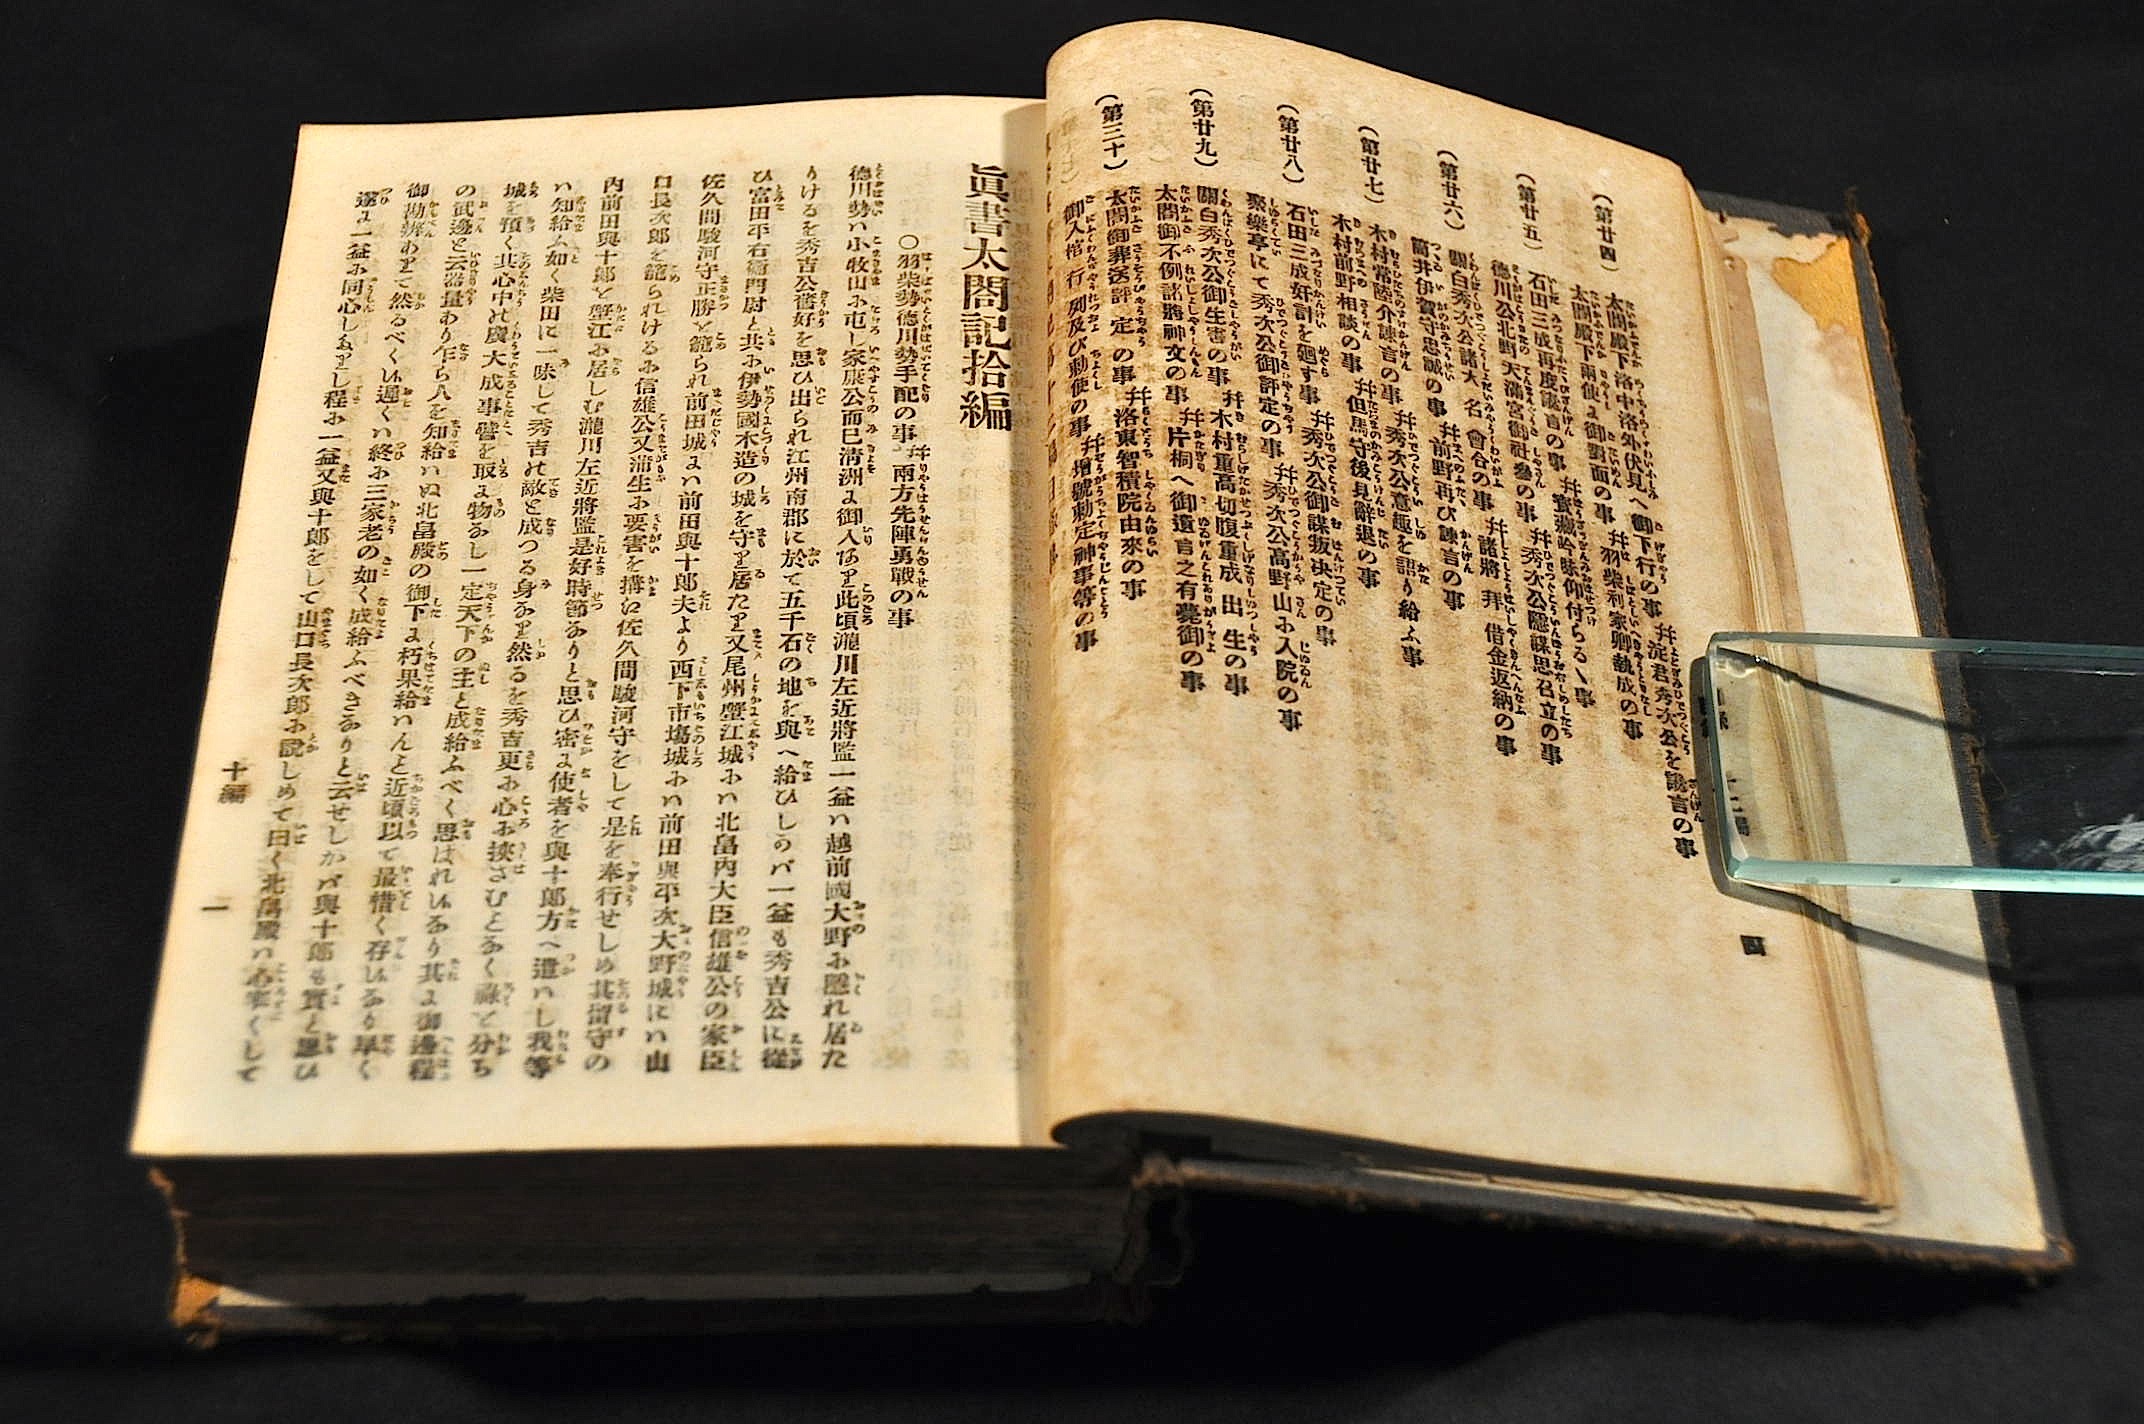 (第廿四)
太閤殿下洛中洛外伏見へ御下行の事 幷淀君秀次公を讒言の事
太閤殿下兩使よ御對面の事 幷羽柴利家卿執成の事
(第廿五)
石田三成再度讒言の事 幷實癪吟味仰付らるゝ事
德川公北野天滿宮御社參の事 幷秀次公隱謀思召立の事
(第廿六)
關白秀次公諸大名會合の事 幷諸將拜借金返納の事
筒井伊賀守忠誠の事 幷前野再び諫言の事
(第廿七)
木村常陸介諫言の事 幷秀次公意趣を語り給ふ事
木村前野相談の事 幷但馬守後見辭退の事
(第廿八)
石田三成奸計を廻す事 幷秀次公御謀叛决定の事
聚樂亭にて秀次公御評定の事 幷秀次公高野山ふ入院の事
(第廿九)
關白秀次公御生害の事 幷木村重高切腹重成出生の事
太閤御不例諸將神文の事 幷片桐へ御遺言之有薨御の事
(第三十)
太閤御葬送評定の事 幷洛東智積院由來の事
御入棺行列及び勅使の事 幷增號勅定神事等の事
四
眞書太閤記拾編
〇羽柴勢德川勢手配の事 幷兩方先陣勇戰の事
德川勢ハ小牧山ふ屯し家康公而已淸洲よ御入有り此頃瀧川左近將監一益ハ越前國大野ふ隱れ居た
りけるを秀吉公舊好を思ひ出られ江州南郡に於て五千石の地を與へ給ひしのバ一益も秀吉公に從
ひ富田平右衞門尉と共ふ伊勢國木造の城を守り居たり又尾州蟹江城ふハ北畠內大臣信雄公の家臣
佐久間駿河守正勝を籠られ前田城よハ前田與十郎夫より西下市塲城ふハ前田與平次大野城にハ山
口長次郎を籠られけるふ信雄公又蒲生ふ要害を搆に佐久間駿河守をして是を奉行せしめ其留守の
內前田與十郎を蟹江ふ居しむ瀧川左近將監是好時節ありと思ひ密よ使者を與十郎方へ遣ハし我等
ハ知給ふ如く柴田に一味して秀吉の敵と成つる身あり然るを秀吉更ふ心ふ挾さむとあく祿を分ち
城を預く其心中の廣大成事譬を取よ物あし一定天下の主と成給ふべく思はれ候あり其よ御邊程
の武邊と云器量あり乍ら人を知給ハぬ北畠殿の御下よ朽果給ハんと近頃以て最惜く存候あり早く
御勘辨ありて然るべく候遲くハ終ふ三家老の如く成給ふべきありと云せしかバ與十郎も實と思ひ
遂よ一益ふ同心しあり し程ふ一益又與十郎をして山口長次郎ふ說しめて曰く北畠殿ハ心窄くして
十編
一